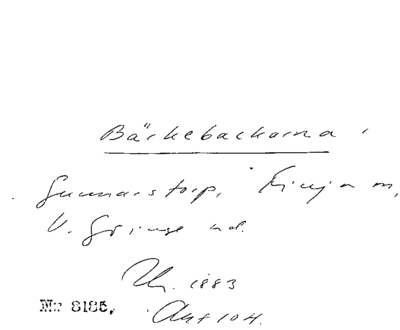 Bäckebackarna
Gunnarstorp, Finja m,
V. Göinge hd.
Uh. 1883
Mr 8185, Akt 104.